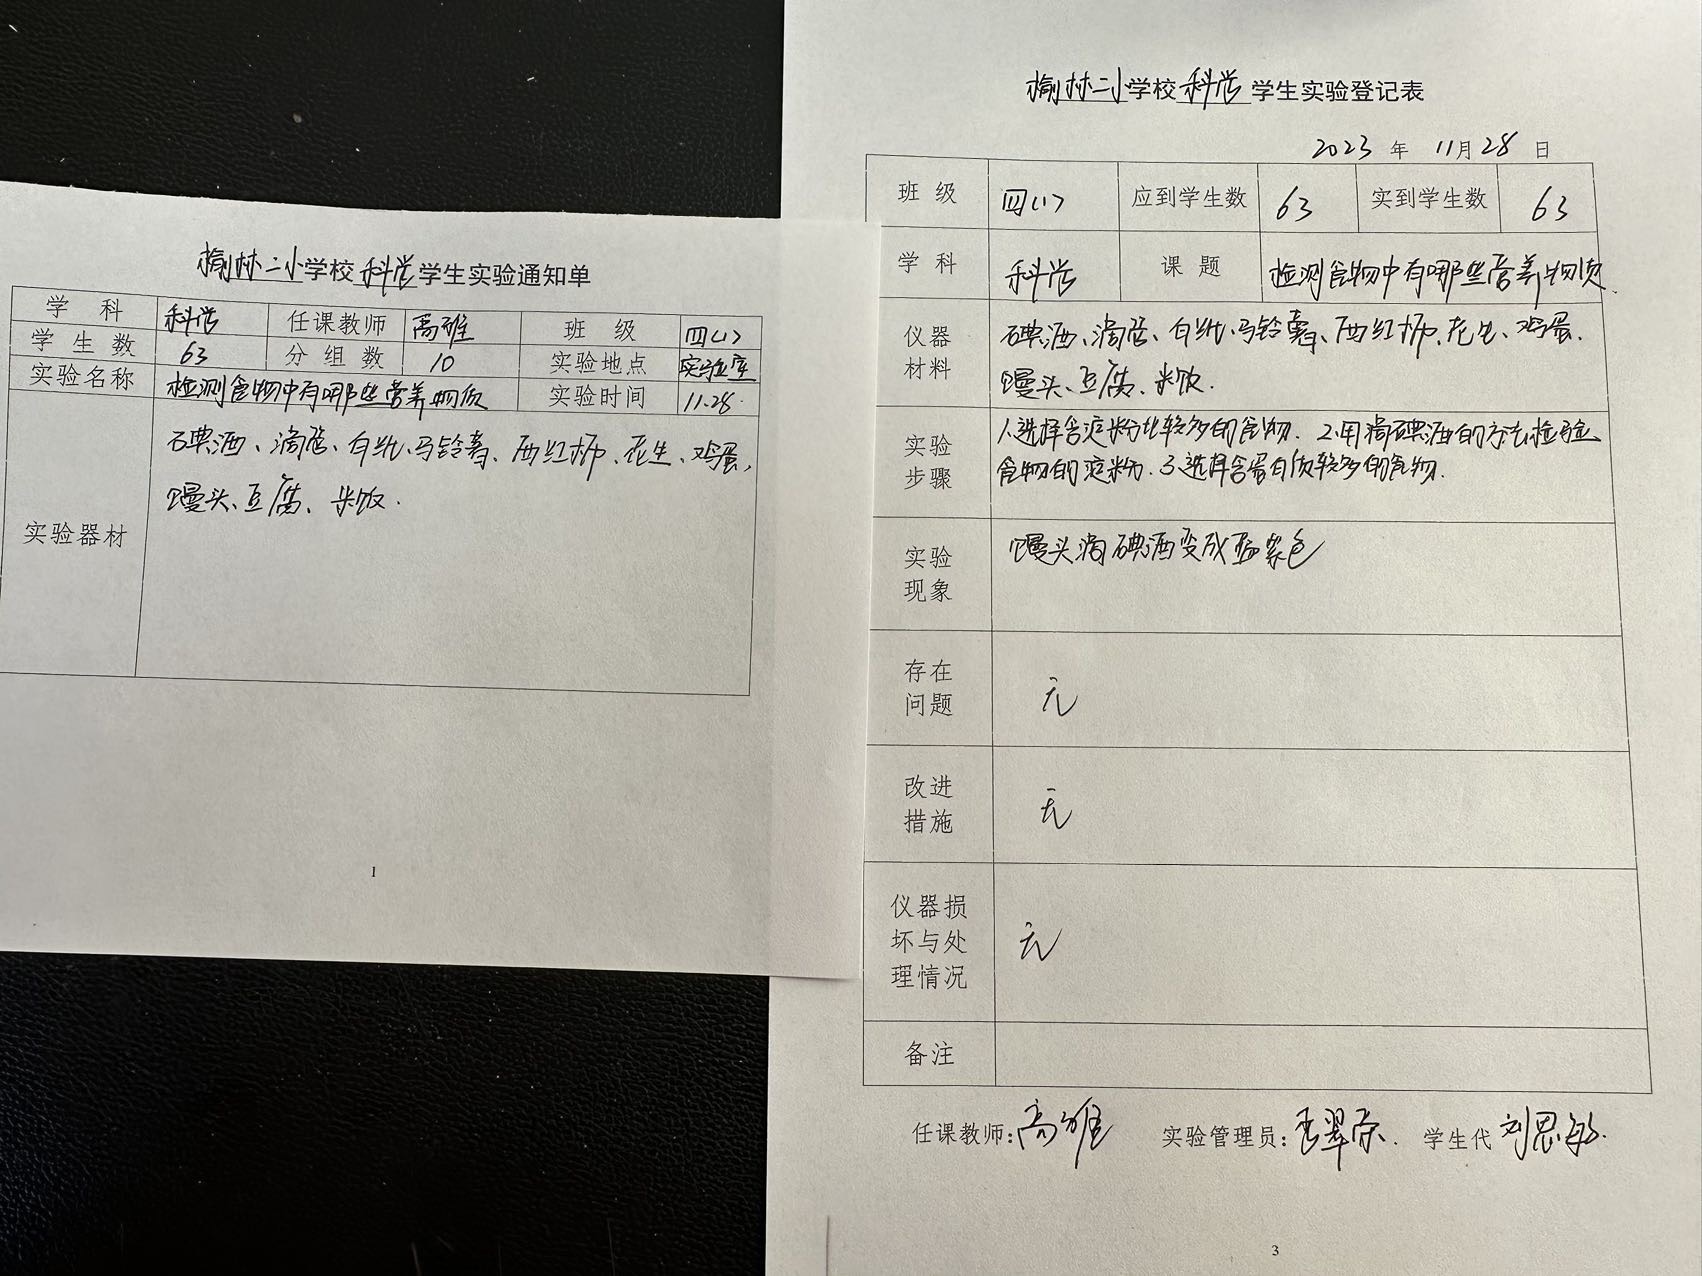 榆林二小学校科学学生实验通知单
学 科 科学 任课教师 高雄 班 级 四(1)
学 生 数 63 分 组 数 10 实验地点 实验室
实验名称 检测食物中有哪些营养物质 实验时间 11.28.
实验器材
碘酒、滴管、白纸、马铃薯、西红柿、花生、鸡蛋,
馒头、豆腐、米饭.
1
榆林二小学校科学学生实验登记表
2023 年 11月28 日
班 级 四(1) 应到学生数 63 实到学生数 63
学 科 科学 课 题 检测食物中有哪些营养物质.
仪器
材料
碘酒、滴管、白纸、马铃薯、西红柿、花生、鸡蛋.
馒头、豆腐、米饭.
实验
步骤
1.选择含淀粉比较多的食物. 2.用滴碘酒的方法检验
食物的淀粉. 3.选择含蛋白质较多的食物.
实验
现象
馒头滴碘酒变成蓝紫色
存在
问题
无
改进
措施
无
仪器损
坏与处
理情况
无
备注
任课教师:高雄 实验管理员: 学生代 刘思敏.
3